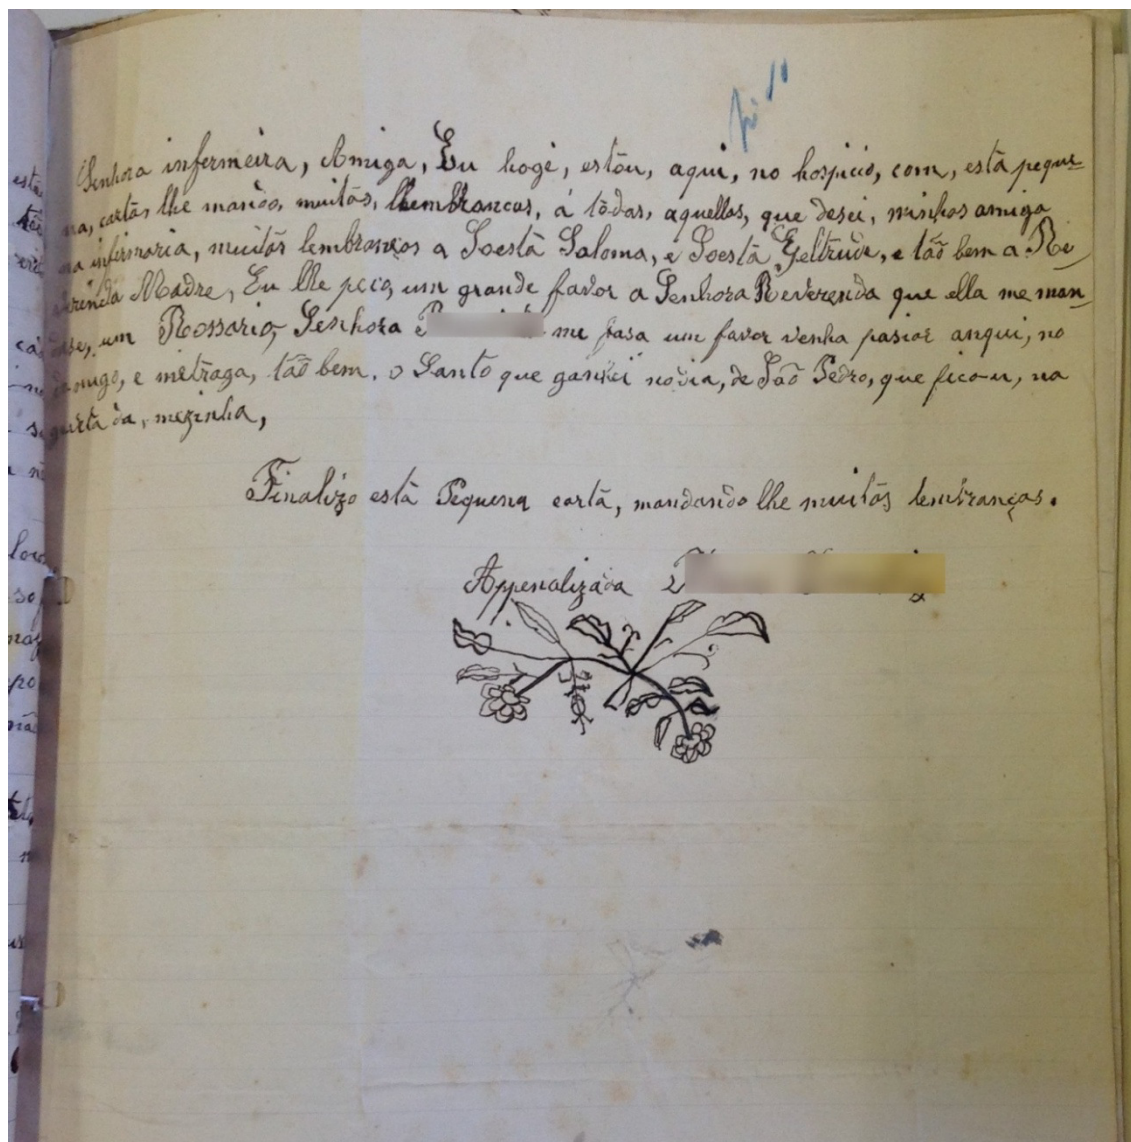 fl. 11
Senhora infermeira, Amiga, Eu hogé, estou, aqui, no hospicio, com, está peque-
na, cartã, lhe mando, muitãs, llembrancas, á tõdas, aquellas, que desei, minhas amiga
na infirmaria, muitãs lembranços a Soestã Saloma, e Soestã Geltrude, e tão bem a Re
verenda Madre, Eu lhe peço, um grande favor a Senhora Reverenda que ella me man
dase, um Rossario, Senhora me fasa um favor venha pasiar anqui, no
domigo, e metraga, tão bem, o Santo que ganhei no dia, de São Pedro, que ficou, na
da, mezinha,
Finalizo está Pequena cartã, mandando lhe muitãs lembranças.
Appenalizada